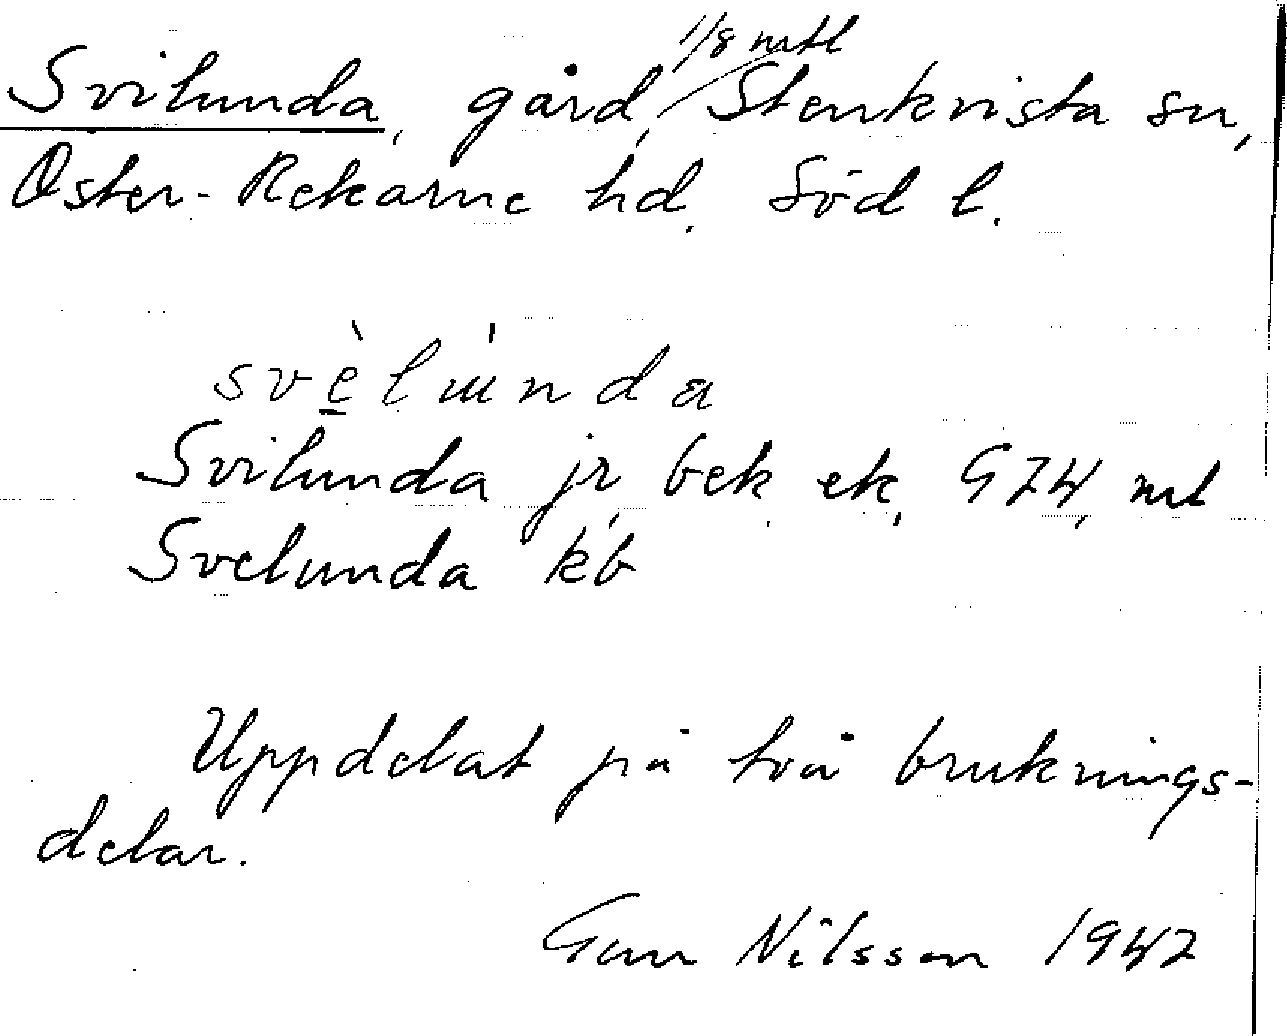 Svilunda, gård, 1/8 mtl Stenkvista sn,
Öster-Rekarne hd. Söd l.
svèlúnda
Svilunda jr, bek, ek, GZW, ml
Svelunda kb
Uppdelat på två bruknings-
delar.
Gun Nilsson 1942